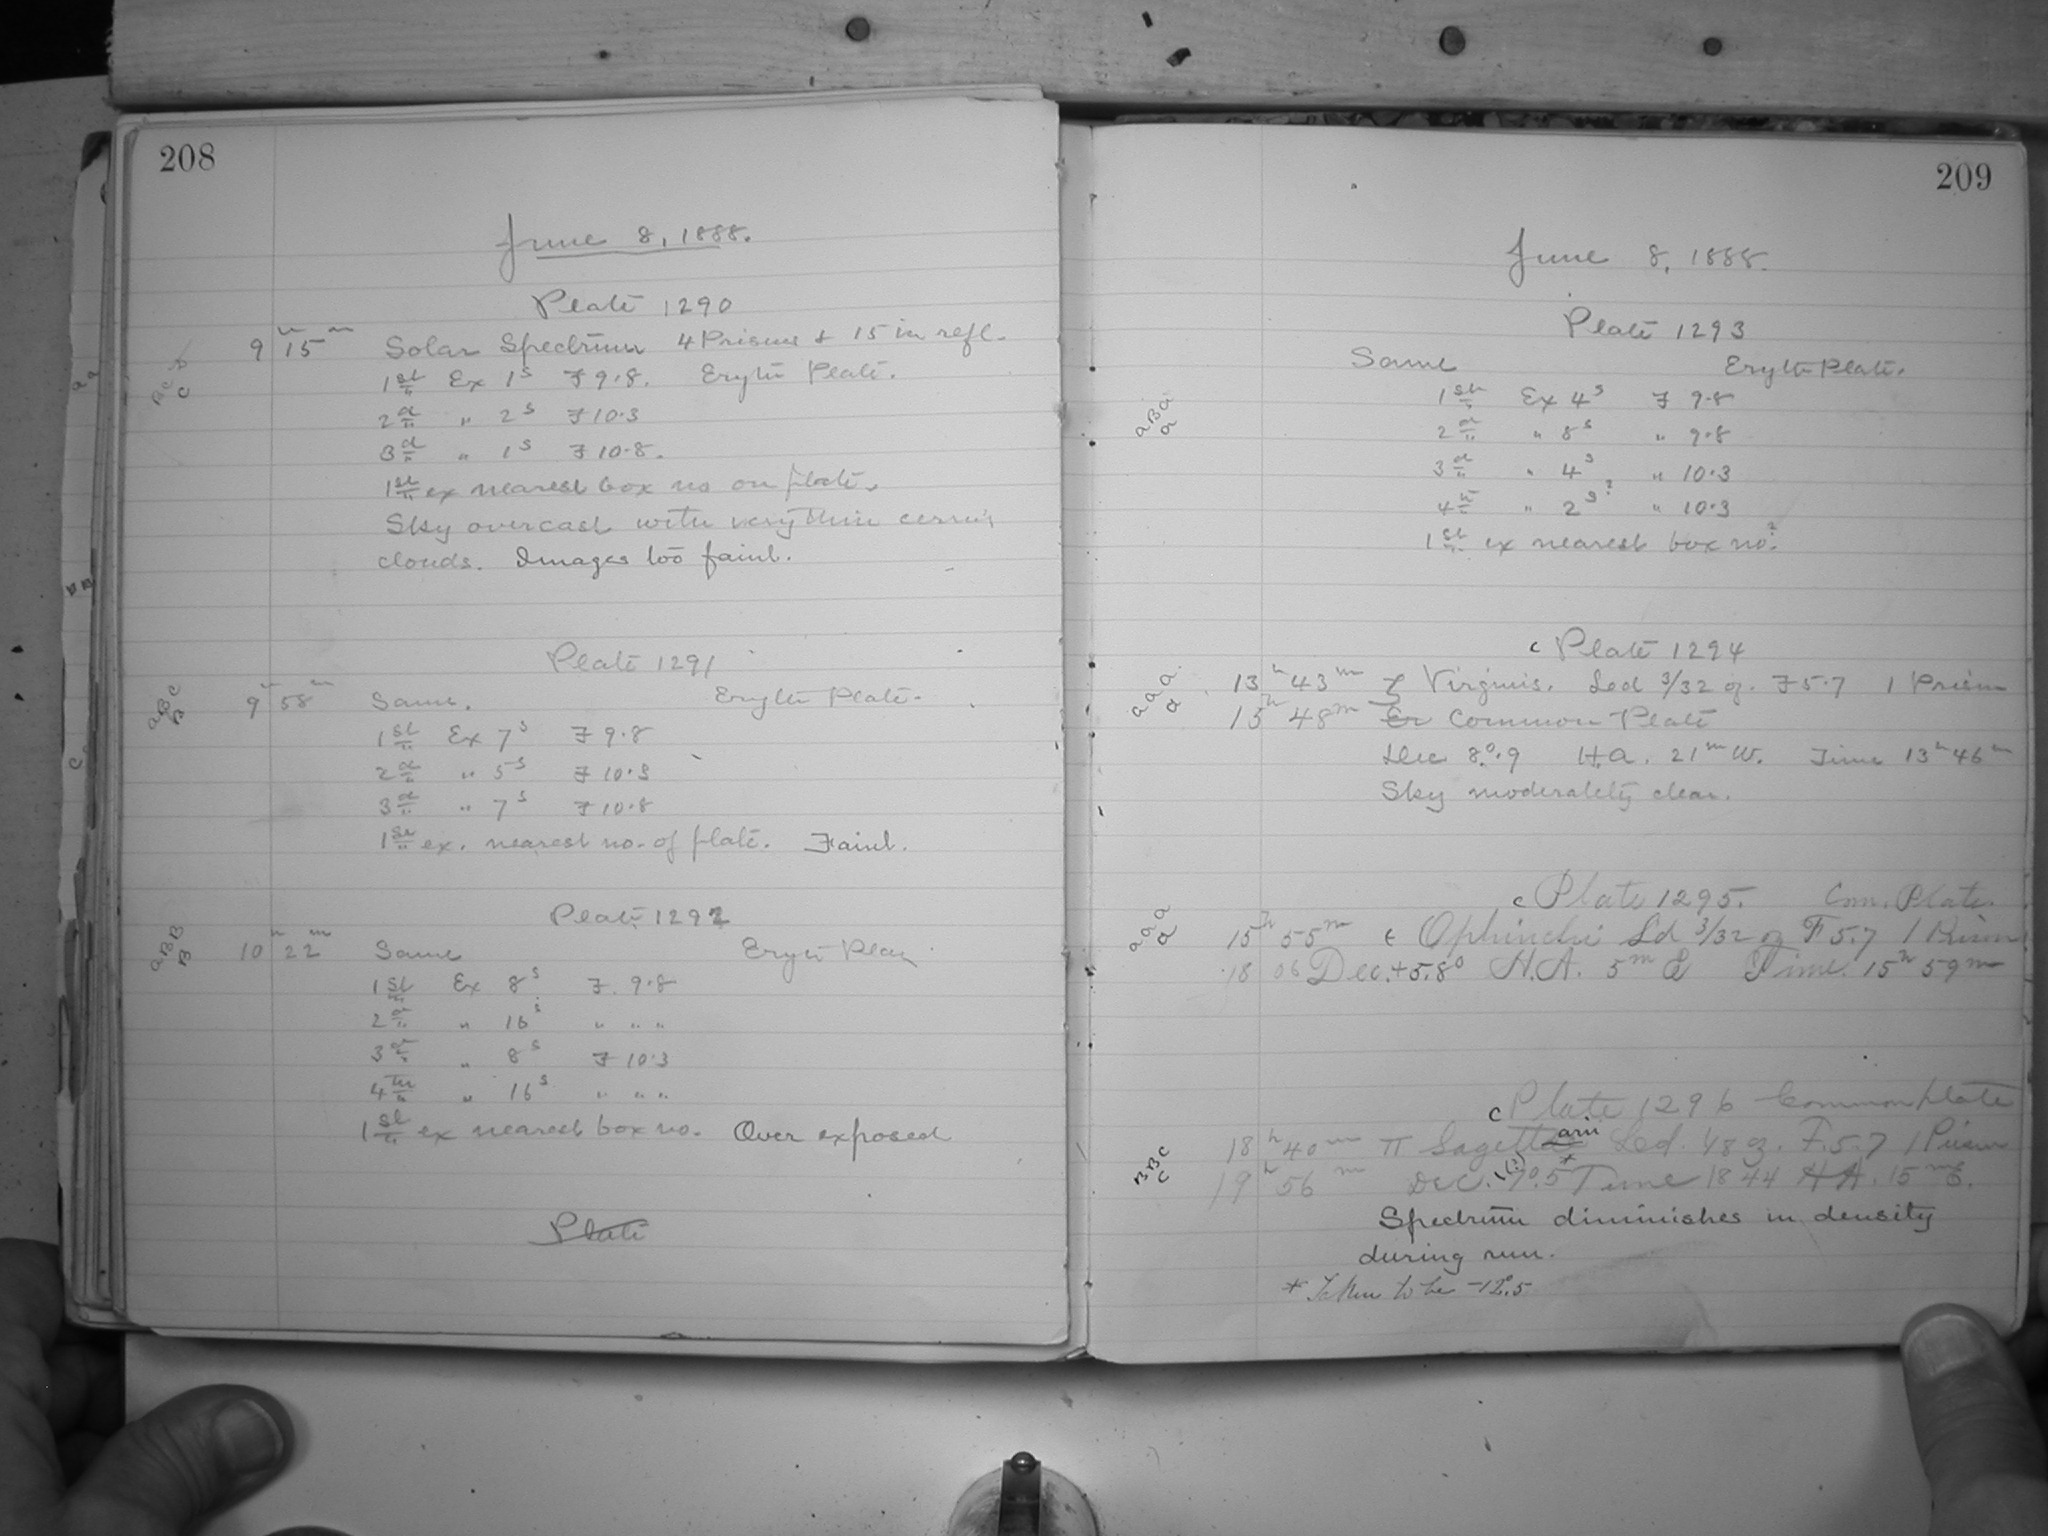 208
June 8, 1888.
Plate 1290
9h 15m Solar Spectrum 4 Prisms & 15 in refl.
1st Ex 1s F 9.8. Eryth Plate.
2d " 2s F 10.3
3d " 1s F 10.8.
1st ex nearest box no on plate.
Sky overcast with very thin cirrus
clouds. Images too faint.
Plate 1291
aBC
B
9h 58m Same. Eryth Plate.
1st Ex 7s F 9.8
2d " 5s F 10.3
3d " 7s F 10.8
1st ex. nearest no. of plate. Faint.
Plate 1292
aBB
B
10h 22m Same Eryth Plate
1st Ex 8s F. 9.8
2d " 16s " " "
3d " 8s F 10.3
4th " 16s " " "
1st ex nearest box no. Over exposed
Plate
209
June 8, 1888.
Plate 1293
Same Eryth Plate.
aBa
a
1st Ex 4s F 9.8
2d " 8s " 9.8
3d " 4s " 10.3
4th " 2s? " 10.3
1st ex nearest box no.?
c Plate 1294
aaa
a
13h 43m ζ Virginis. Led 3/32 of. F 5.7 1 Prism
15h 48m Er Common Plate
Dec 8°.9 H.a. 21m W. Time 13h 46m
Sky moderately clear.
c Plate 1295. Com. Plate.
aaa
a
15h 55m ε Ophiuchi Ld 3/32 of F 5.7 1 Prism
18 06 Dec. +5.8° H.A. 5m E Time. 15h 59m
c Plate 1296 Common plate
BBC
C
18h 40m π Sagittarii Led. 1/8 of. F. 5.7 1 Prism
19h 56m Dec. (?)°.5* Time 18 44 H.A. 15m E.
Spectrum diminishes in density
during run.
* Taken to be -12°.5